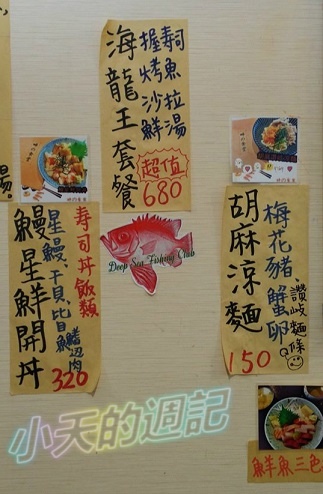 海龍王套餐
握壽司
烤魚
沙拉
鮮湯
超值
680
壽司丼飯類
星鰻、干貝、比目魚鰭边肉
鰻星鮮開丼
320
Deep Sea Fishing Club
胡麻涼麵
梅花豬、蟹卵
讚岐麵條
Q
150
鮮魚三色
湯。
小天的週記